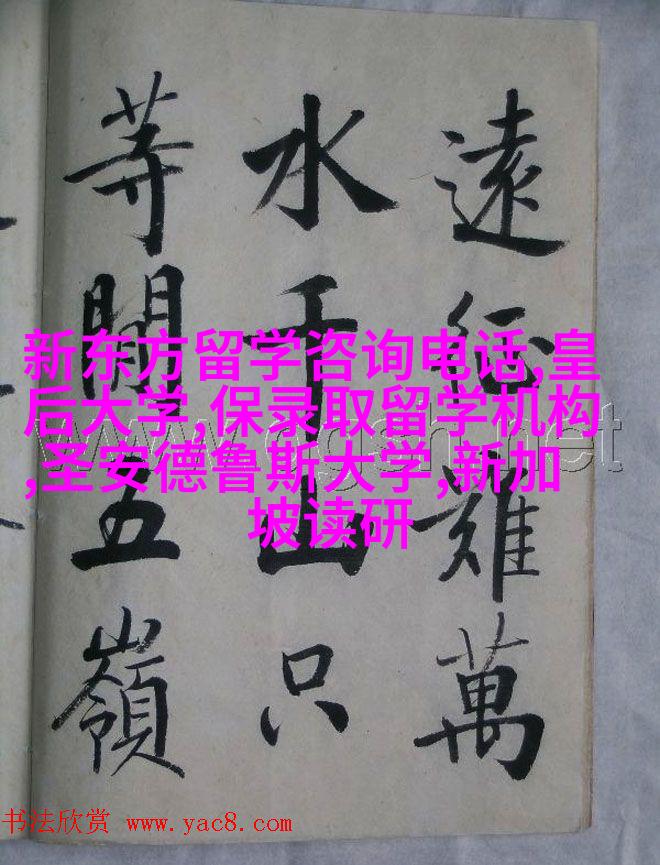 遠征難萬
水千山只
等閒五嶺
新东方留学咨询电话,皇
后大学,保录取留学机构
,圣安德鲁斯大学,新加
坡读研
书法欣赏 www.yac8.com